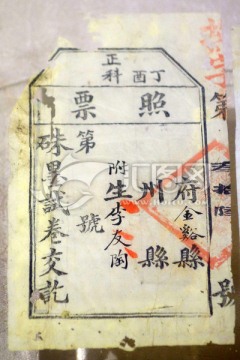 丁酉
正科
照票
府金谿縣
州縣
附生李友蘭
第
號
硃墨試卷交訖
第
號